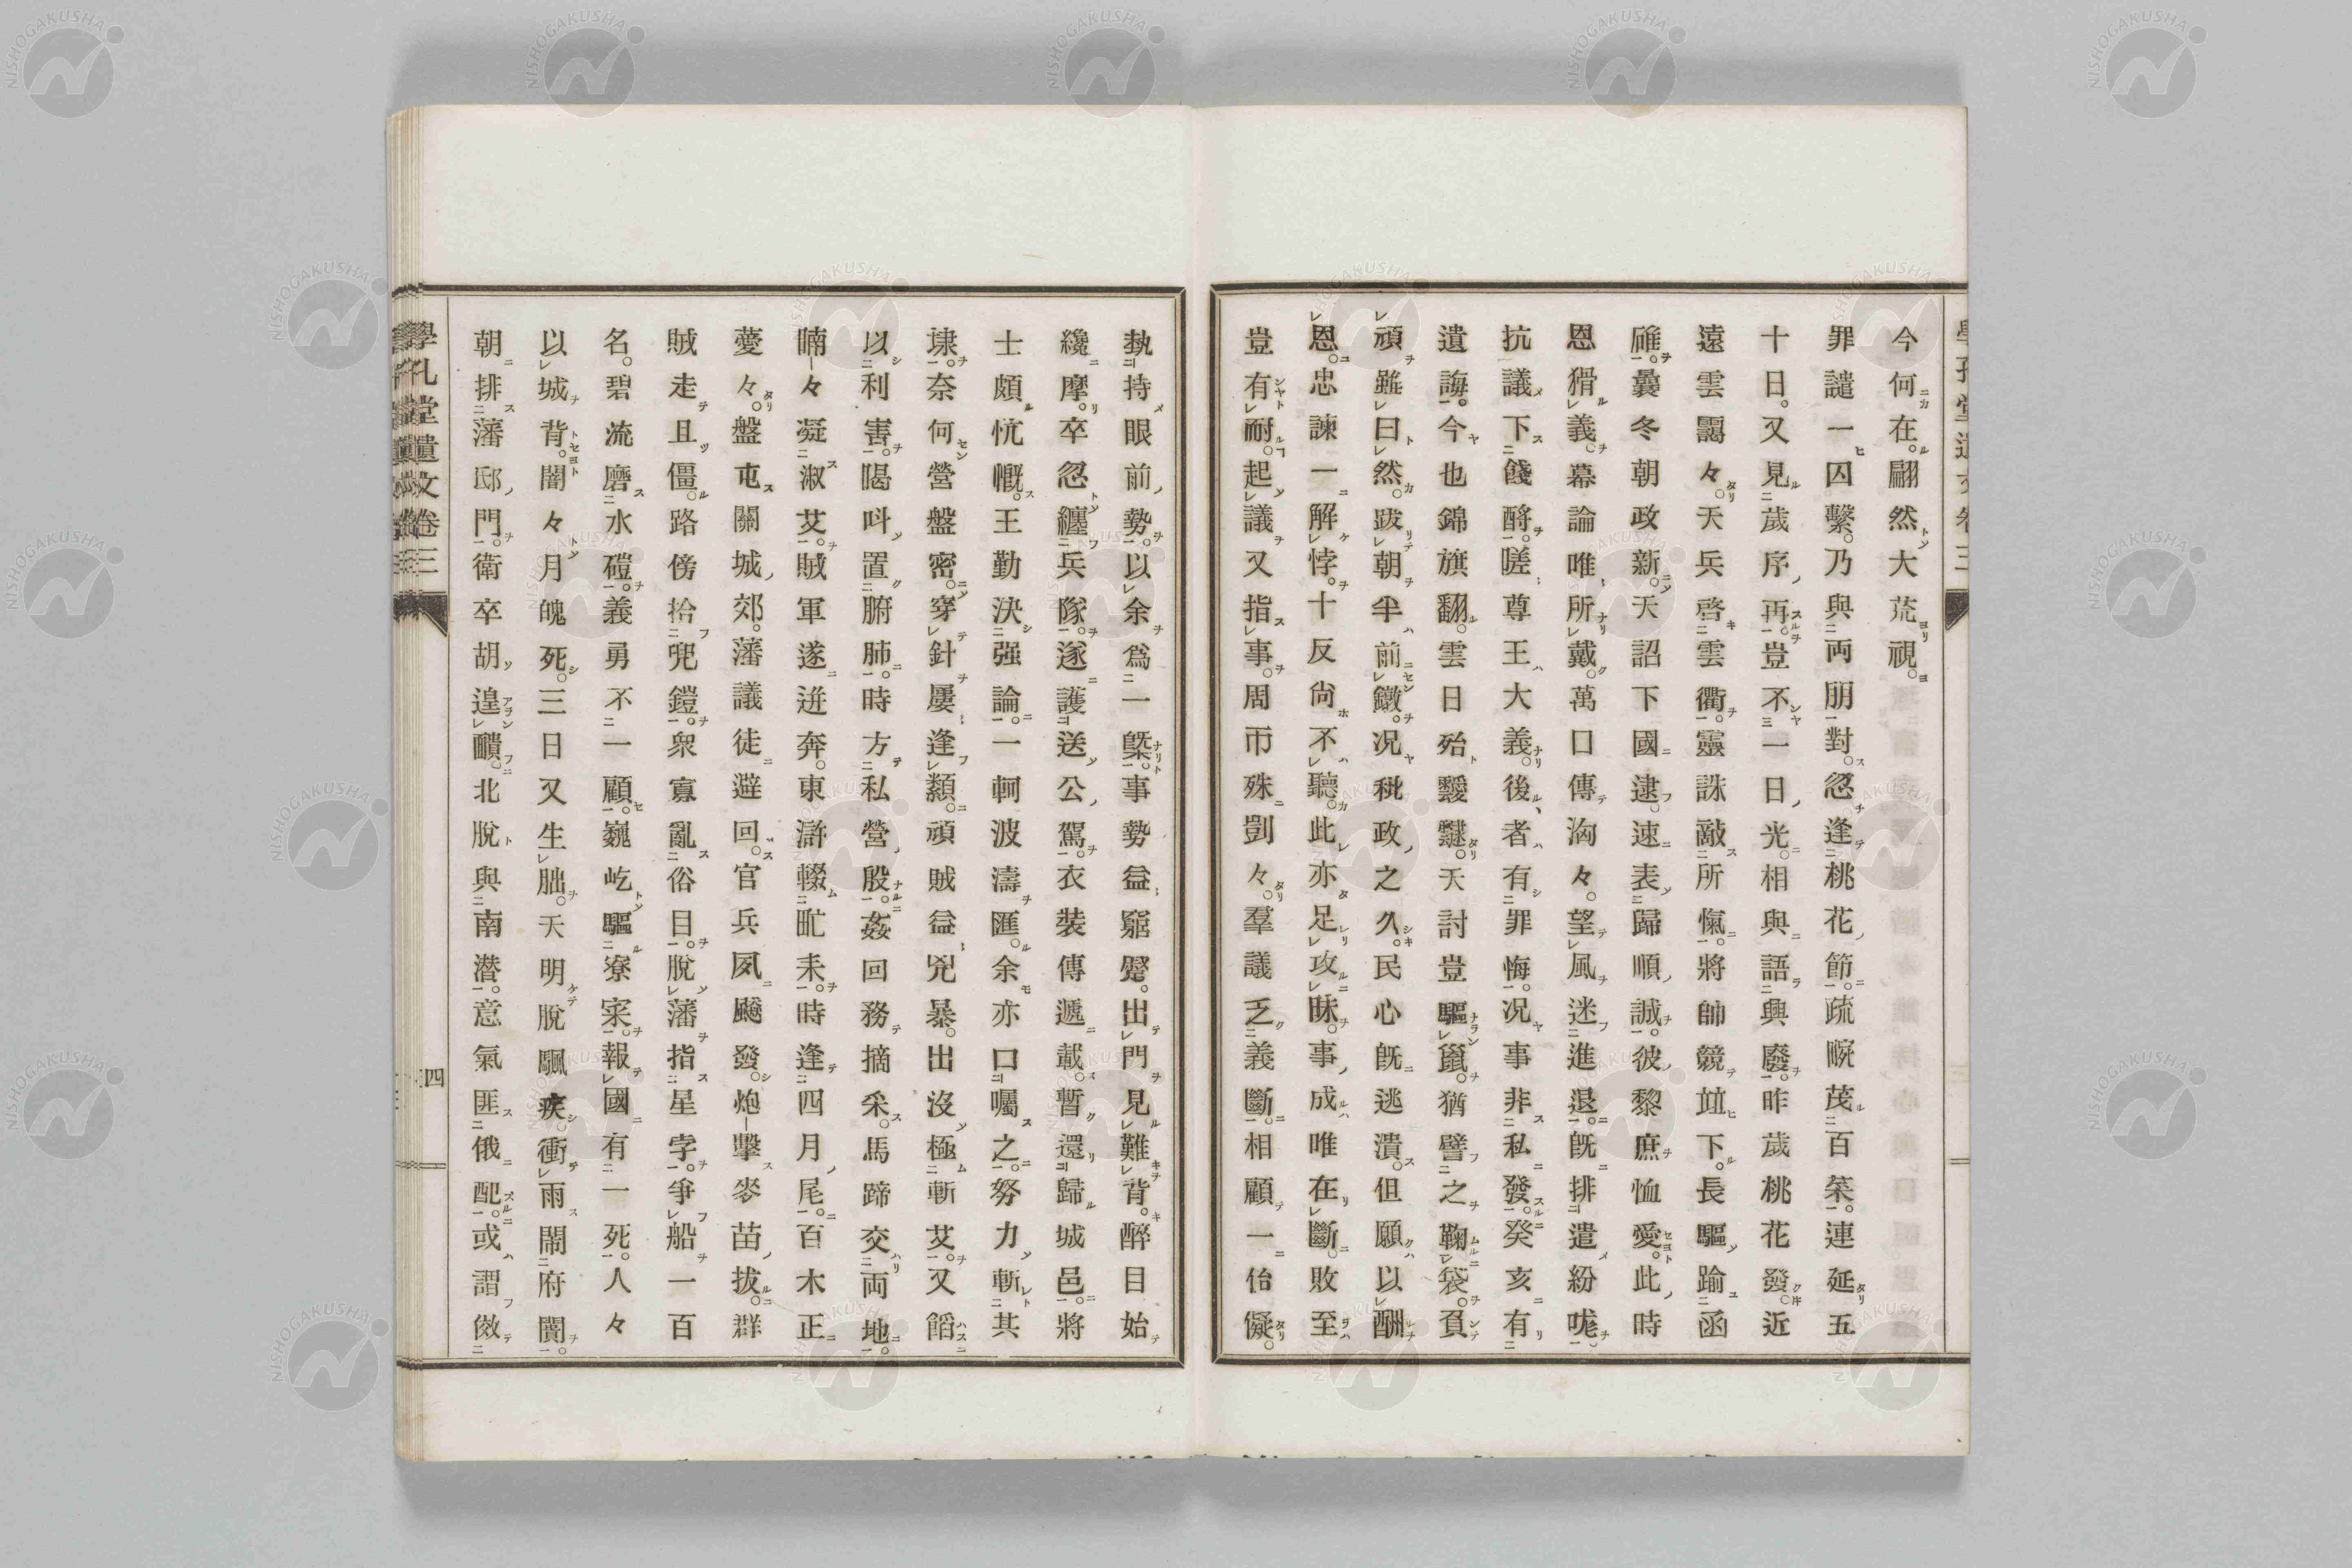 今何在。翩然大荒視。
罪譴一囚繫。乃與両朋對。忽逢桃花節。疏畹茂百筞。連延五
十日。又見歲序再。豈不一日光。相與語興廢。昨歲桃花發。近
遠雲靄々。天兵啓雲衢。靈誅敵所愾。將帥競竝下。長驅踰函
碓。曩冬朝政新。天詔下國逮。速表歸順誠。彼黎庶恤愛。此時
恩猾義。幕論唯所戴。萬口傳洶々。望風迷進退。旣排遣紛
抗議下餞酹。嗟尊王大義。後者有罪悔。况事非私發。癸亥有
遺誨。今也錦旗翻。雲日殆靉靆。天討豈驅䉡。猶譬之鞠袋。負
頑雖曰然。跋朝半前鐓。况秕政之久。民心旣逃潰。但願以酬
恩。忠諫一解悖。十反尙不聽。此亦足攻昧。事成唯在斷。敗至
豈有耐。起議又指事。周帀殊剴々。羣議乏義斷。相顧一佁儗。
執持眼前勢。以余爲一槩。事勢益窮蹙。出門見難背。醉目始
纔摩。卒忽纏兵隊。遂護送公駕。衣裝傳遞載。暫還歸城邑。將
士頗忼慨。王勤決强論。一軻波濤匯。余亦口囑之。努力斬其
埭。奈何營盤密。穿針屢逢纇。頑賊益兇暴。出沒極斬艾。又餡
以利害。喝叫置腑肺。時方私營殷。姦回務摘采。馬蹄交両地。
喃々凝淑艾。賊軍遂迸奔。東滸輟畝耒。時逢四月尾。百木正
薆々。盤屯關城郊。藩議徒避回。官兵夙颷發。炮擊麥苗拔。群
賊走且僵。路傍拾兜鎧。衆寡亂俗目。脫藩指星孛。爭船一百
名。碧流磨水磑。義勇不一顧。巍屹驅寮寀。報國有一死。人々
以城背。闇々月魄死。三日又生朏。天明脫颿疾。衝雨鬧府闠。
朝排藩邸門。衛卒胡遑靧。北脫與南潛。意氣匪俄配。或謂傚
學孔堂遺文卷三
四